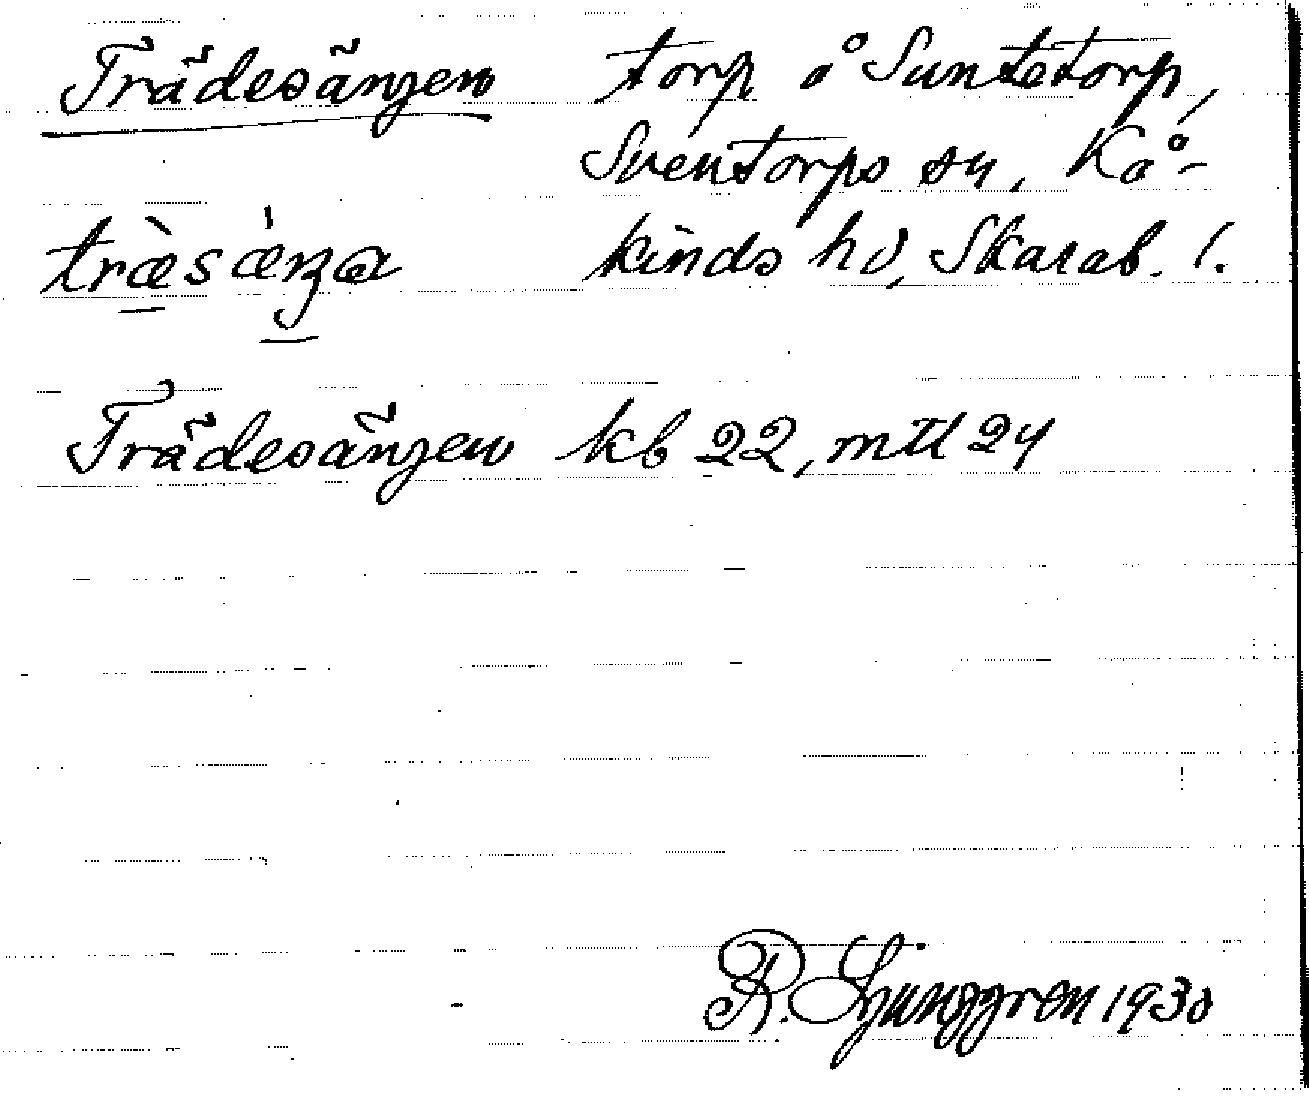 Trädesängen torp å Suntetorp,
Sventorps sn, Kå-
kinds hd, Skarab. l.
Trädesängen kb 22, mtl 24
R. Ljunggren 1930